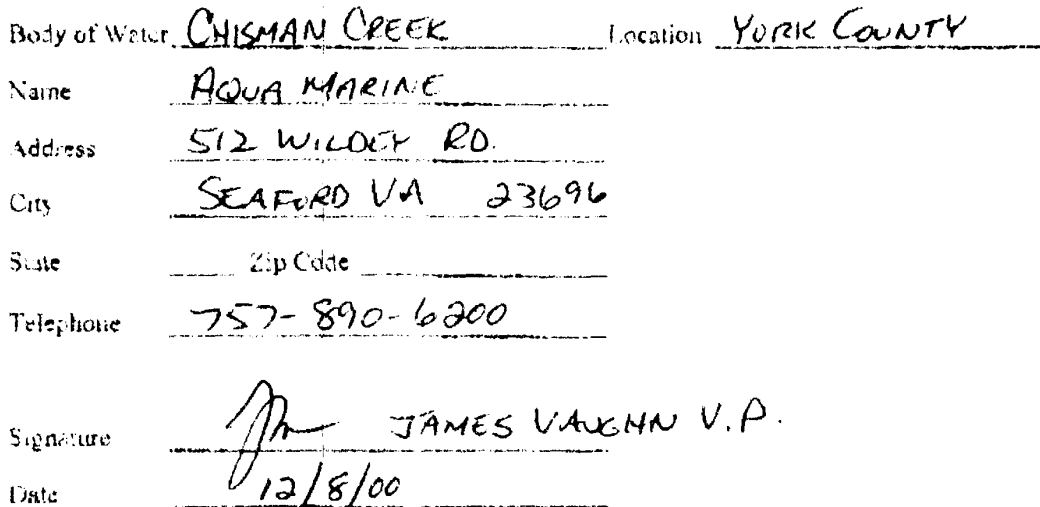 Body of Water CHISMAN CREEK Location YORK COUNTY
Name AQUA MARINE
Address 512 WILDEY RD.
City SEAFORD VA 23696
State Zip Code
Telephone 757-890-6200
Signature JAMES VAUGHN V.P.
Date 12/8/00